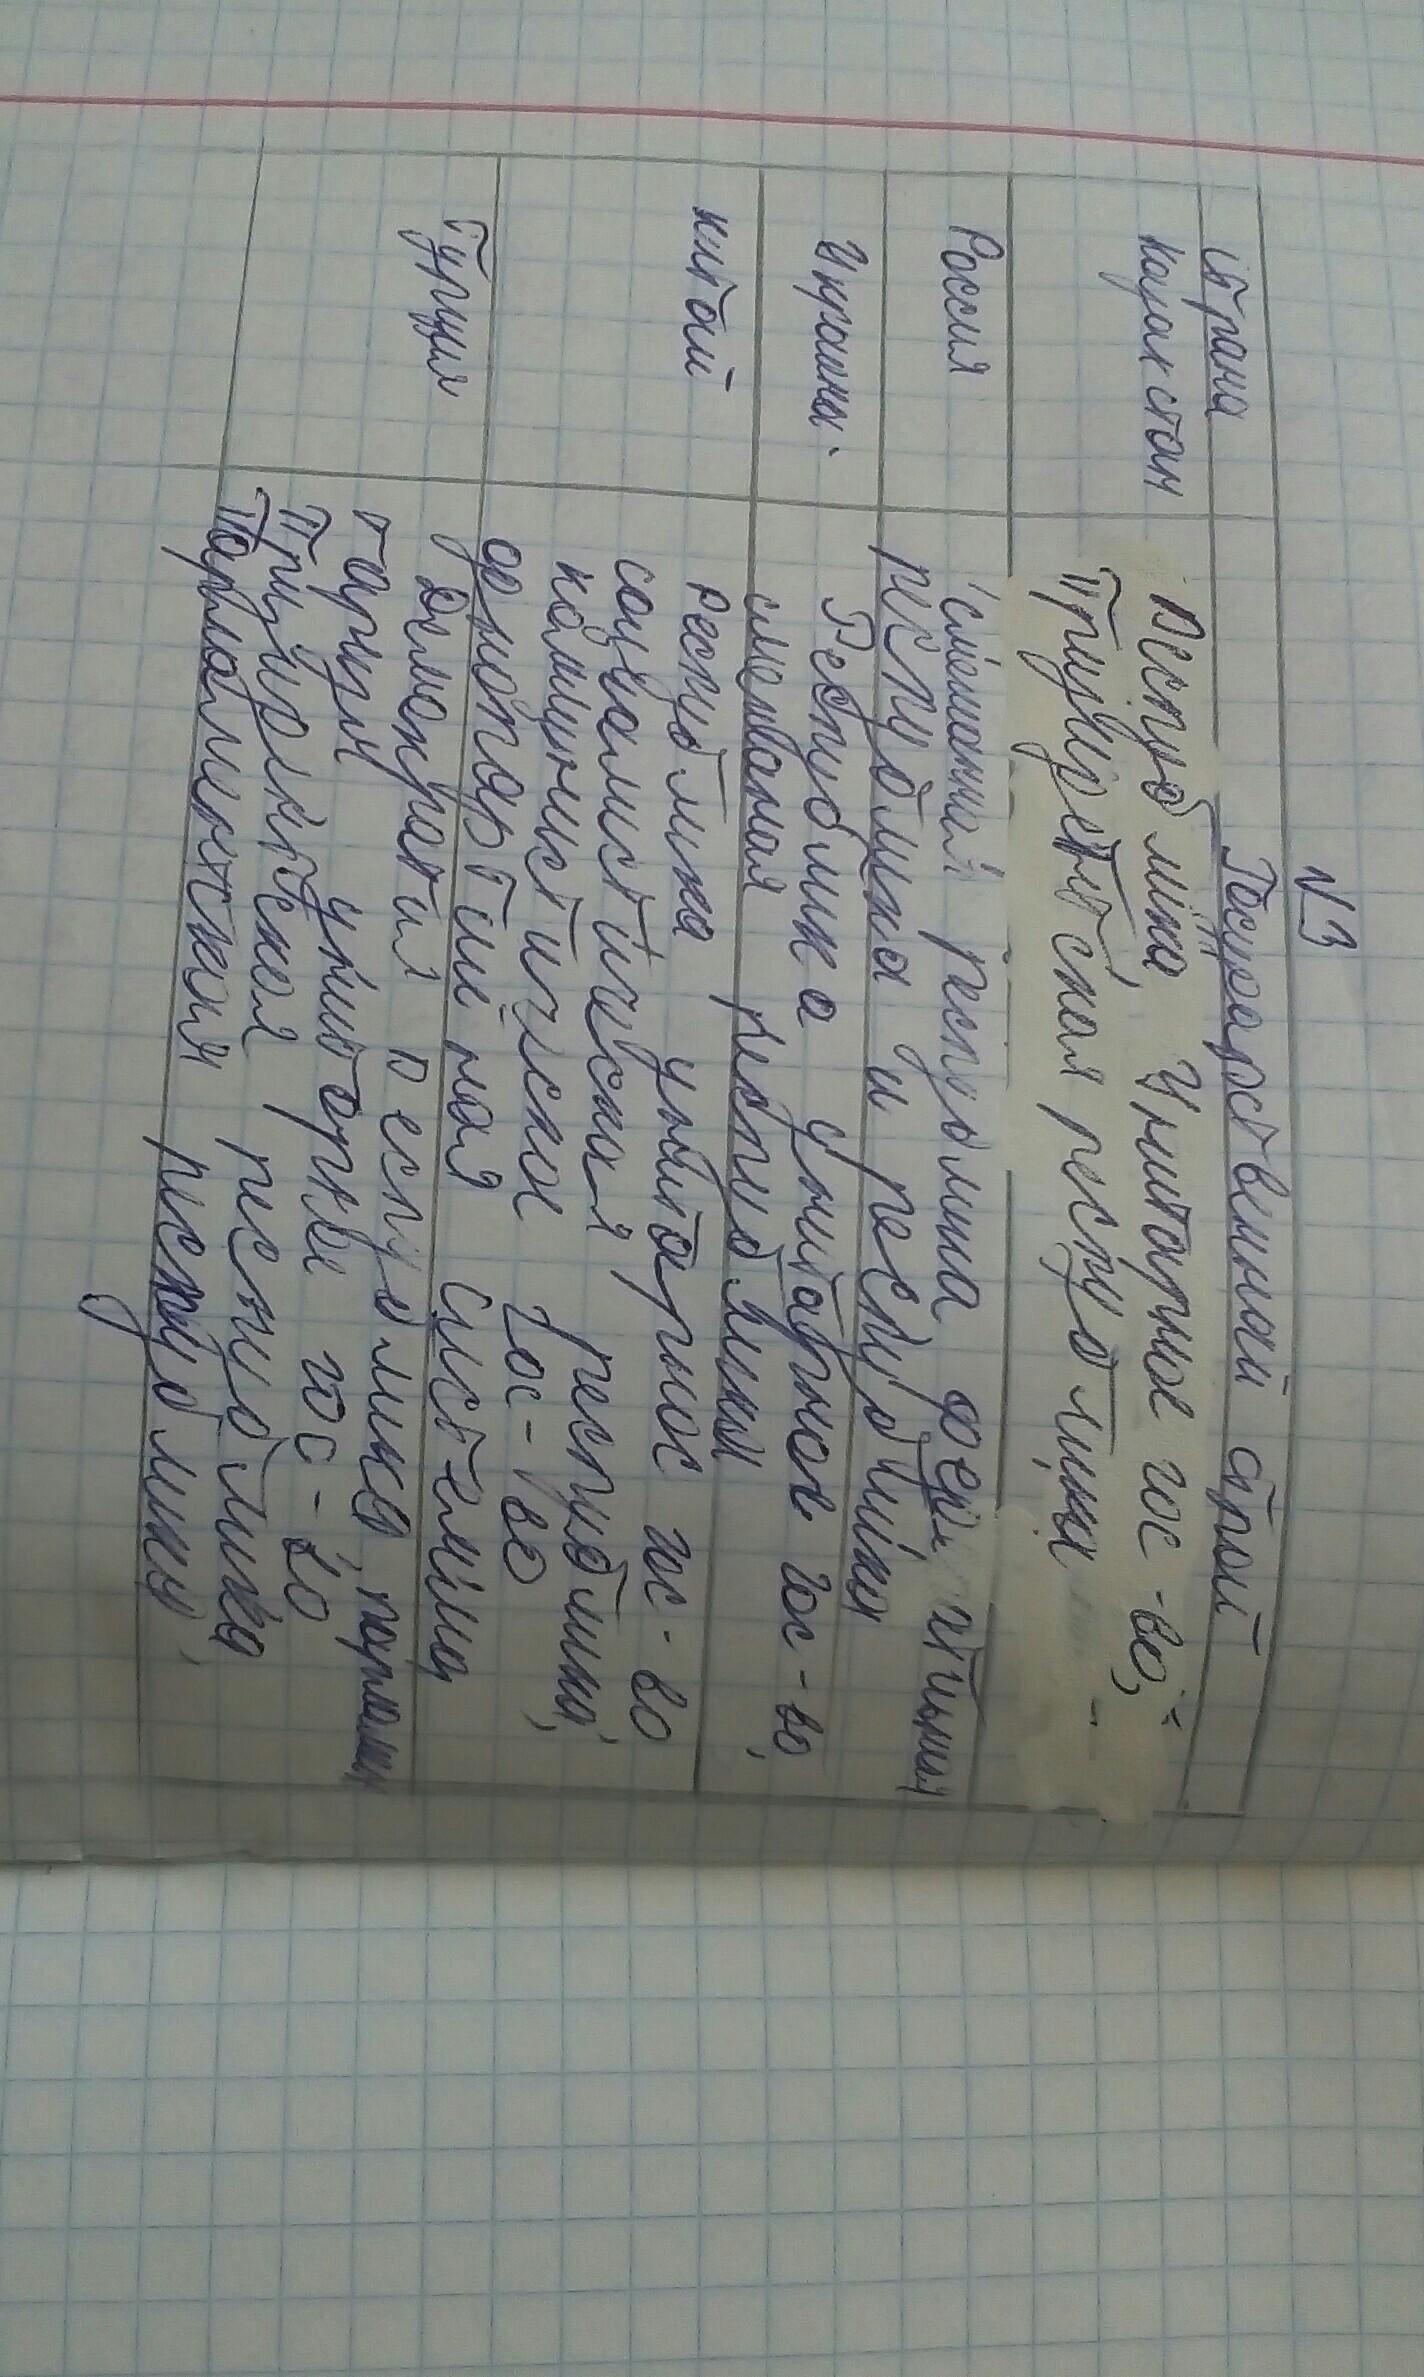 №3
Страна Государственный строй
Казакстан Республика, Унитарное гос-во,
Призиретская республика
Россия смешенная республика
республика и республики
Украина. Республика унитарное гос-во,
смешаная республики
Китай республика унитарное гос-во
социалистическая республика,
коммунистическое гос-во
однопартийная система
Турция Демократия республика,
унитарное гос-во
Призиретская республика
Парламентская республика,